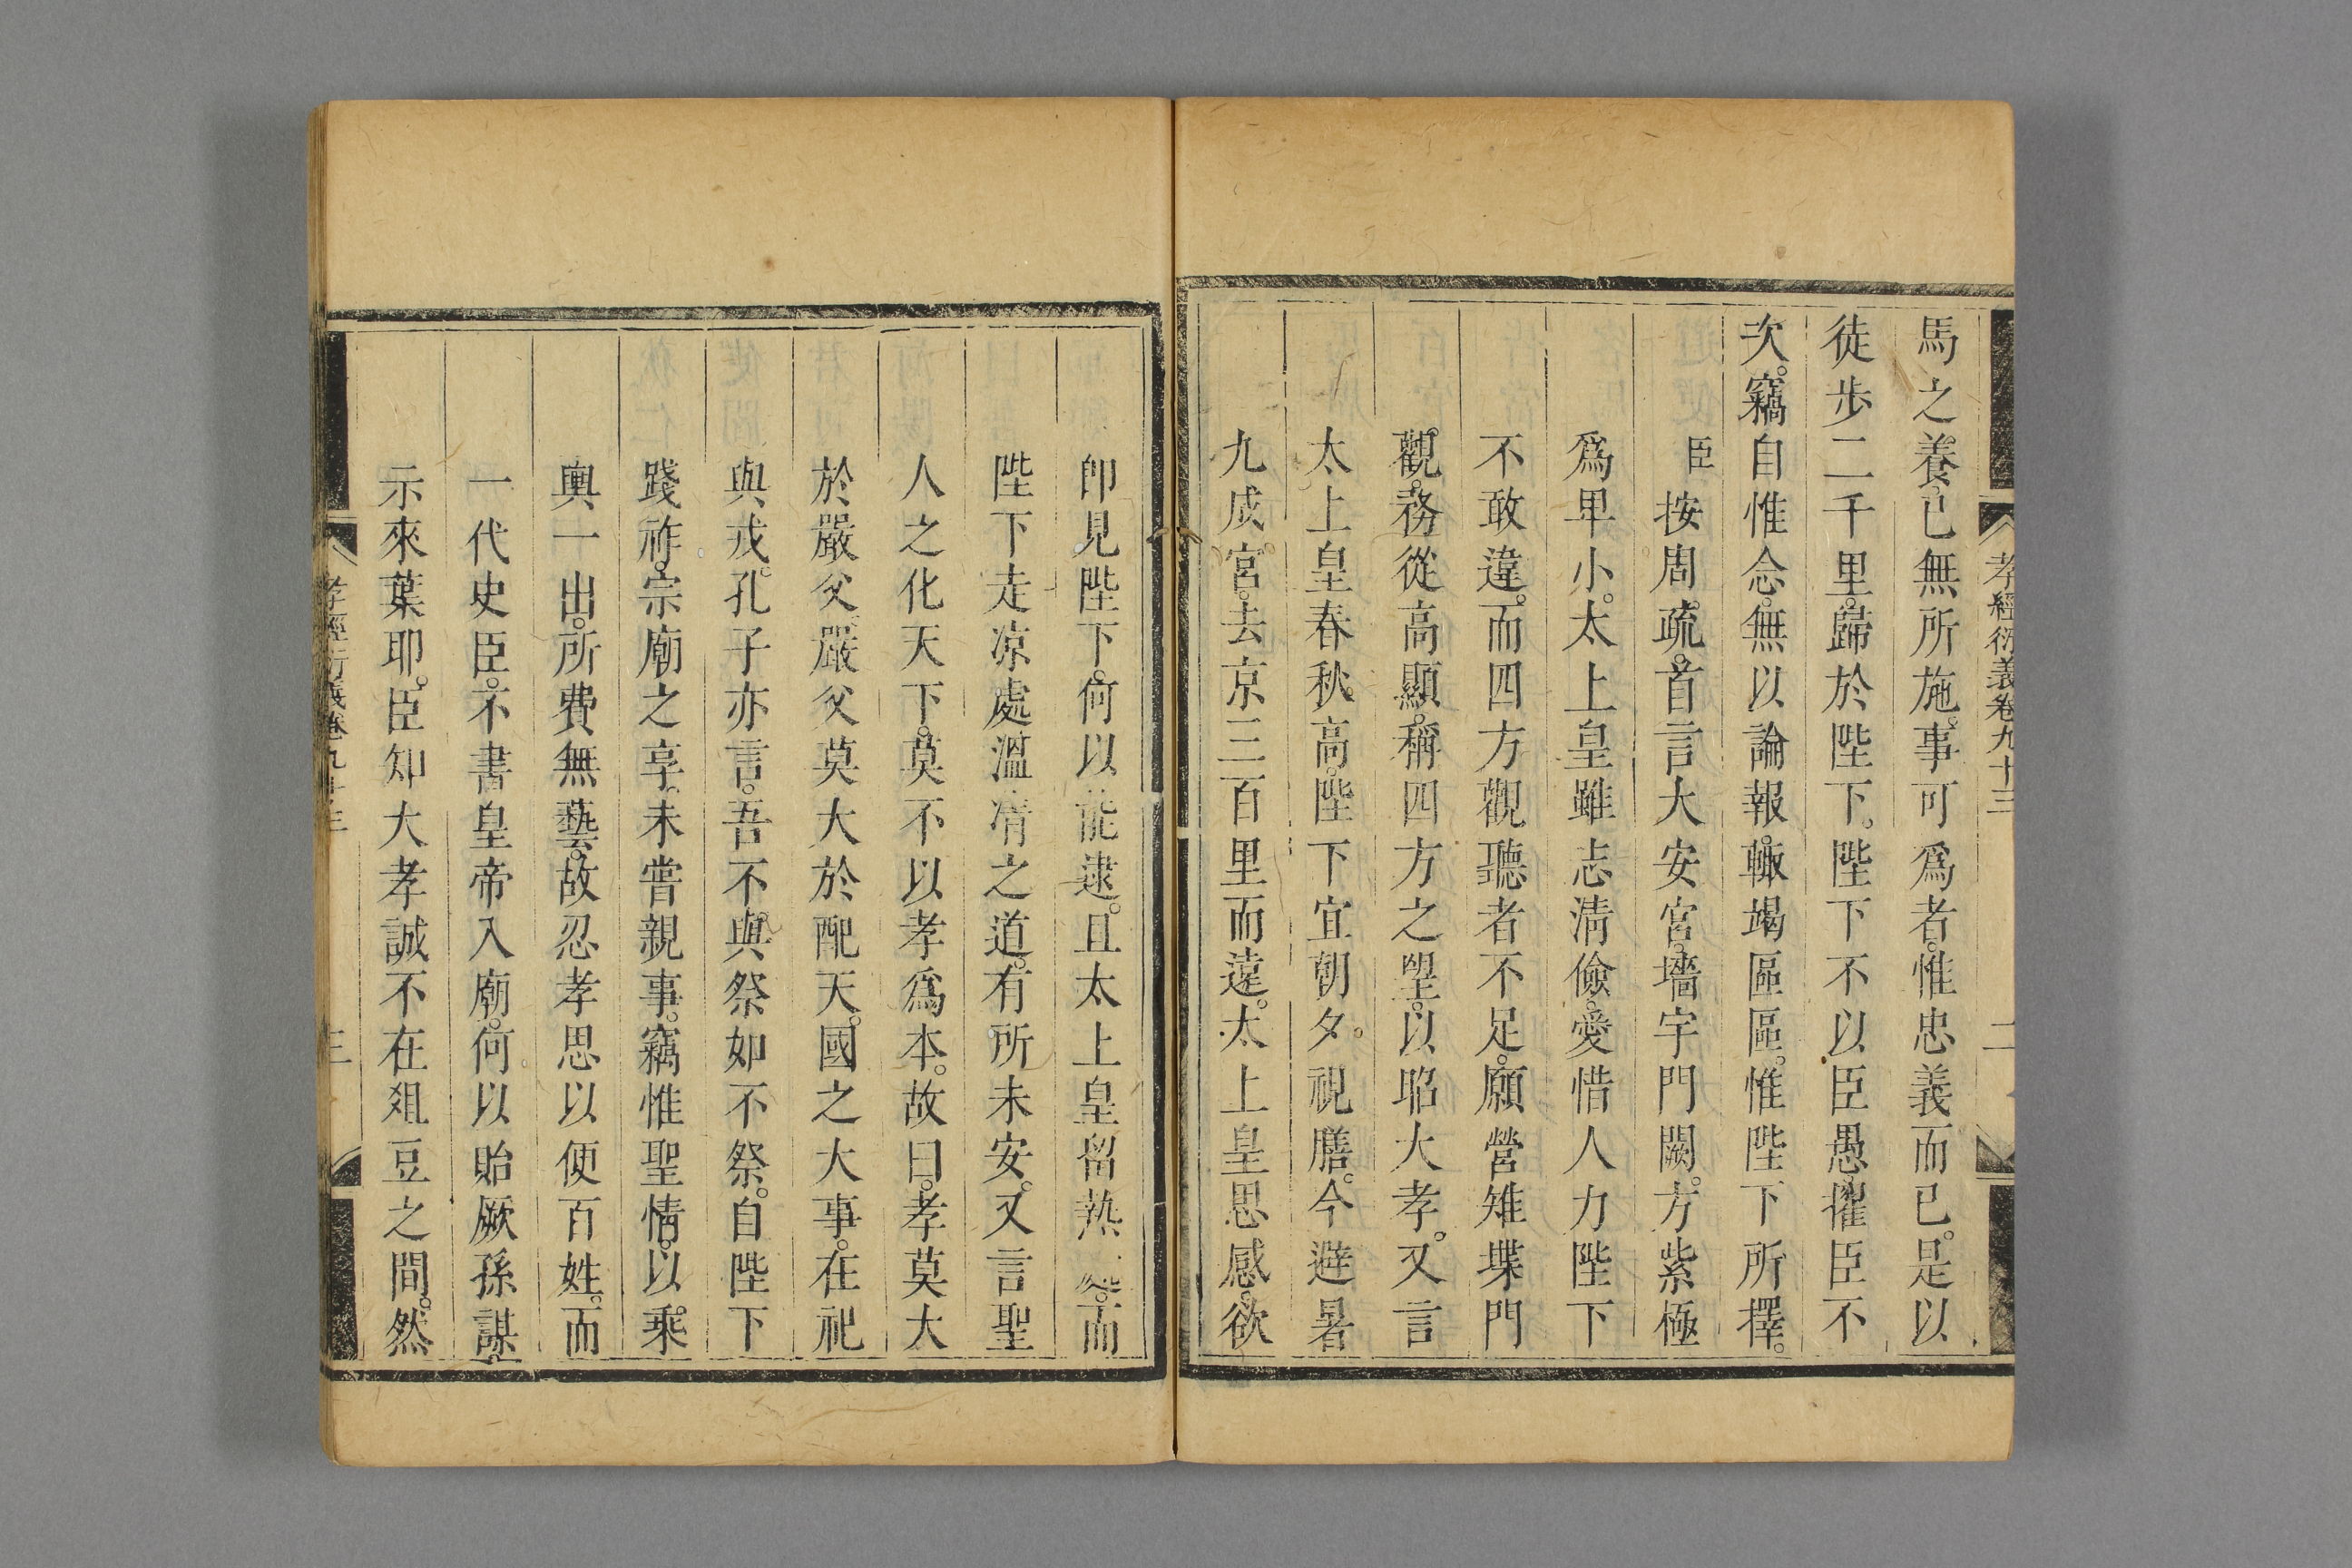 孝經衍義卷九十三
二
馬之養。已無所施。事可爲者。惟忠義而已。是以
徒步二千里。歸於陛下。陛下不以臣愚。擢臣不
次。竊自惟念。無以論報。輙竭區區。惟陛下所擇。
臣按周疏。首言大安宮。墻宇門闕。方紫極
爲卑小。太上皇雖志淸儉。愛惜人力陛下
不敢違。而四方觀聽者不足。願營雉堞門
觀。務從高顯。稱四方之望。以昭大孝。又言
太上皇春秋高。陛下宜朝夕。視膳。今避暑
九成宮。去京三百里而遠。太上皇思感。欲
卽見陛下。何以能逮。且太上皇留熱處。而
陛下走凉處溫凊之道。有所未安。又言聖
人之化天下。莫不以孝爲本。故曰。孝莫大
於嚴父。嚴父莫大於配天。國之大事。在祀
與戎。孔子亦言。吾不與祭如不祭。自陛下
踐祚。宗廟之享。未嘗親事。竊惟聖情。以乘
輿一出。所費無藝。故忍孝思以便百姓。而
一代史臣。不書皇帝入廟。何以貽厥孫謀。
示來葉耶。臣知大孝誠不在俎豆之間。然
孝經衍義卷九十三
三